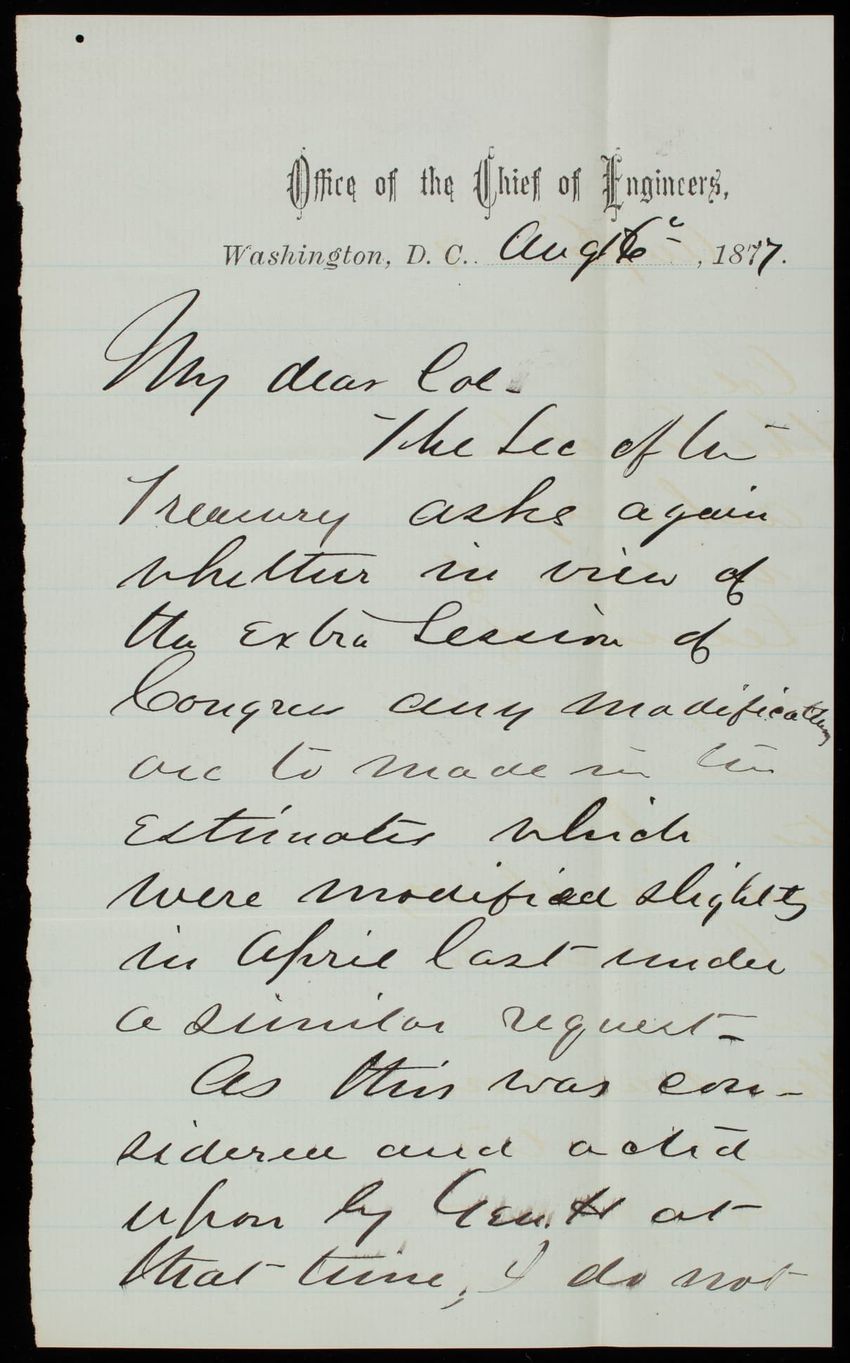 Office of the Chief of Engineers,
Washington, D. C. Aug 16, 1877.
My dear Col-
The Sec of the
Treasury asks again
whether in view of
the Extra Session of
Congress any modifications
are to made in the
Estimates which
were modified slightly
in April last under
a similar request-
As this was con-
sidered and acted
upon by Gen. H at
that time, I do not